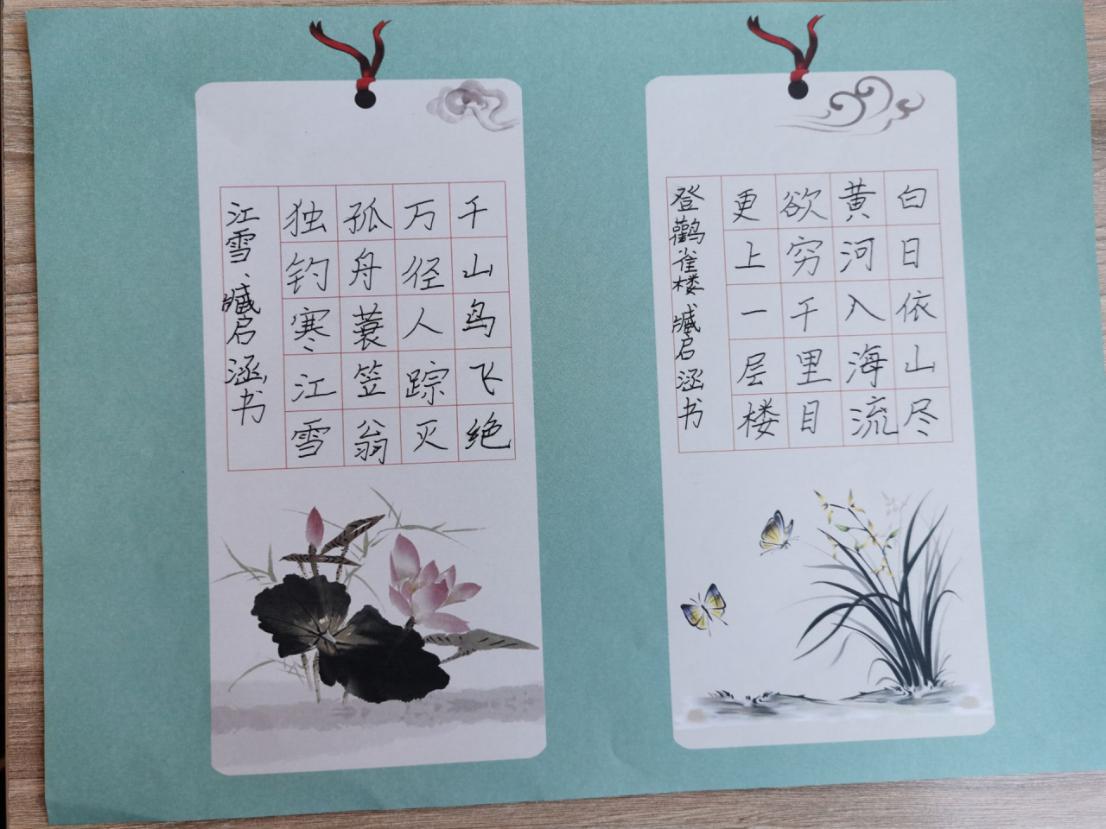 千山鸟飞绝
万径人踪灭
孤舟蓑笠翁
独钓寒江雪
江雪、臧启涵书
白日依山尽
黄河入海流
欲穷千里目
更上一层楼
登鹳雀楼 臧启涵书